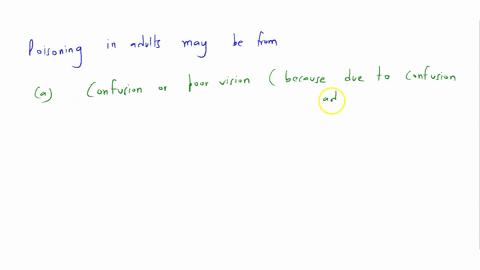 Poisoning in adults may be from
(a) Confusion or poor vision ( because due to confusion
ad